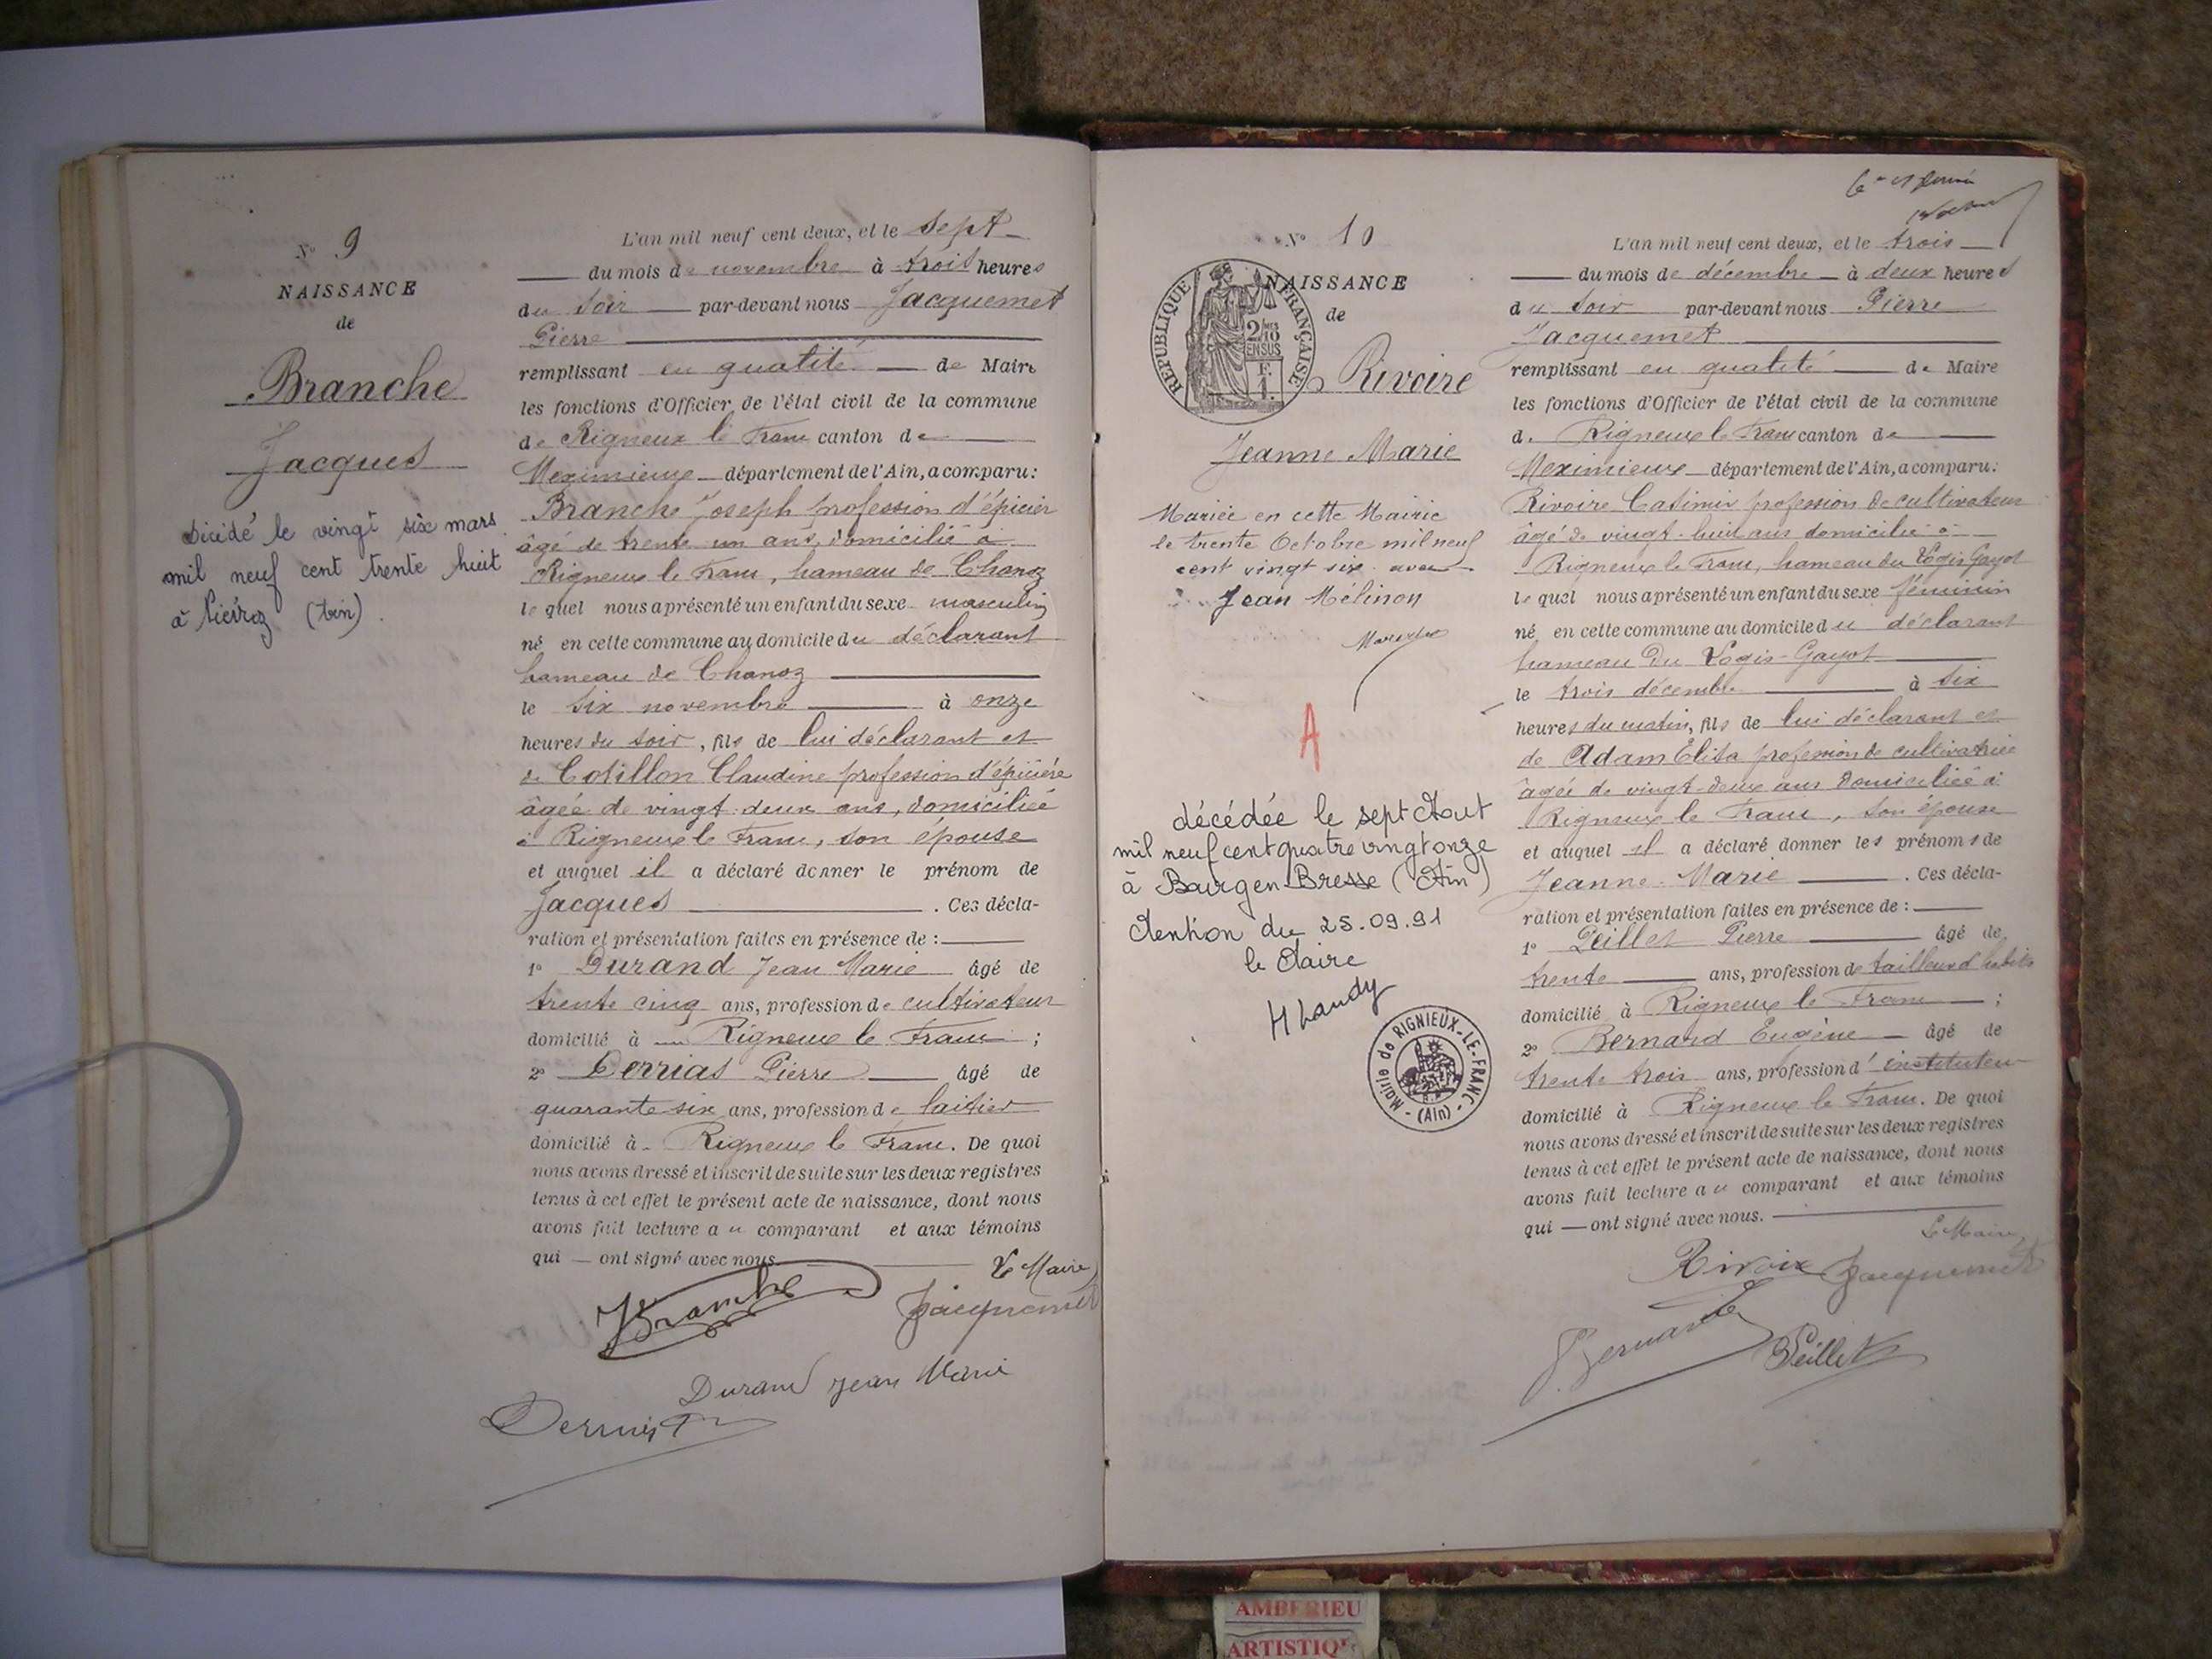 N° 9
NAISSANCE
de
Branche
Jacques
décédé le vingt six mars
mil neuf cent trente huit
à (Ain).
L'an mil neuf cent deux, et le sept
du mois de novembre à trois heures
du soir par-devant nous Jacquemet
Pierre
remplissant en qualité de Maire
les fonctions d'Officier de l'état civil de la commune
de Rigneux le Franc canton de
Meximieux département de l'Ain, a comparu:
Branche Joseph profession d'épicier
âgé de trente un ans, domicilié à
Rigneux le Franc, hameau de Chanoz
lequel nous a présenté un enfant du sexe masculin
né en cette commune au domicile du déclarant
hameau de Chanoz
le six novembre à onze
heures du soir, fils de lui déclarant et
de Cotillon Claudine profession d'épicière
âgée de vingt deux ans, domiciliée
à Rigneux le Franc, son épouse
et auquel il a déclaré donner le prénom de
Jacques . Ces décla-
ration et présentation faites en présence de :
1° Durand Jean Marie âgé de
trente cinq ans, profession de cultivateur
domicilié à Rigneux le Franc ;
2° Perrias Pierre âgé de
quarante six ans, profession de laitier
domicilié à Rigneux le Franc. De quoi
nous avons dressé et inscrit de suite sur les deux registres
tenus à cet effet le présent acte de naissance, dont nous
avons fait lecture au comparant et aux témoins
qui — ont signé avec nous.
Le Maire
JBranche Jacquemet
Durand Jean Marie
N° 10
NAISSANCE
de
RÉPUBLIQUE FRANÇAISE
2/10 EN SUS
F. 1.
Rivoire
Jeanne Marie
Mariée en cette Mairie
le trente Octobre mil neuf
cent vingt six avec
Jean Mélinon
A
décédée le sept Aout
mil neuf cent quatre vingt onze
à Bourg en Bresse (Ain)
Mention du 25.09.91
le Maire
H Landy
Mairie de RIGNIEUX-LE-FRANC - (Ain) -
L'an mil neuf cent deux, et le trois
du mois de décembre à deux heures
du soir par-devant nous Pierre
Jacquemet
remplissant en qualité de Maire
les fonctions d'Officier de l'état civil de la commune
de Rigneux le Franc canton de
Meximieux département de l'Ain, a comparu:
Rivoire Casimir profession de cultivateur
âgé de vingt-huit ans domicilié à
Rigneux le Franc, hameau du Logis Gayot
lequel nous a présenté un enfant du sexe féminin
né en cette commune au domicile du déclarant
hameau du Logis-Gayot
le trois décembre à six
heures du matin, fils de lui déclarant et
de Adam Elisa profession de cultivatrice
âgée de vingt-deux ans domiciliée à
Rigneux le Franc, son épouse
et auquel il a déclaré donner les prénoms de
Jeanne Marie . Ces décla-
ration et présentation faites en présence de :
1° Peillet Pierre âgé de
trente ans, profession de tailleur d'habits
domicilié à Rigneux le Franc ;
2° Bernard Eugène âgé de
trente trois ans, profession d'instituteur
domicilié à Rigneux le Franc. De quoi
nous avons dressé et inscrit de suite sur les deux registres
tenus à cet effet le présent acte de naissance, dont nous
avons fait lecture au comparant et aux témoins
qui — ont signé avec nous.
Le Maire,
Rivoire Jacquemet
Bernard Peillet
AMBERIEU
ARTISTIQUE